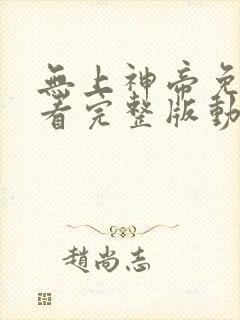 無上神帝免
看完整版動
趙尚志